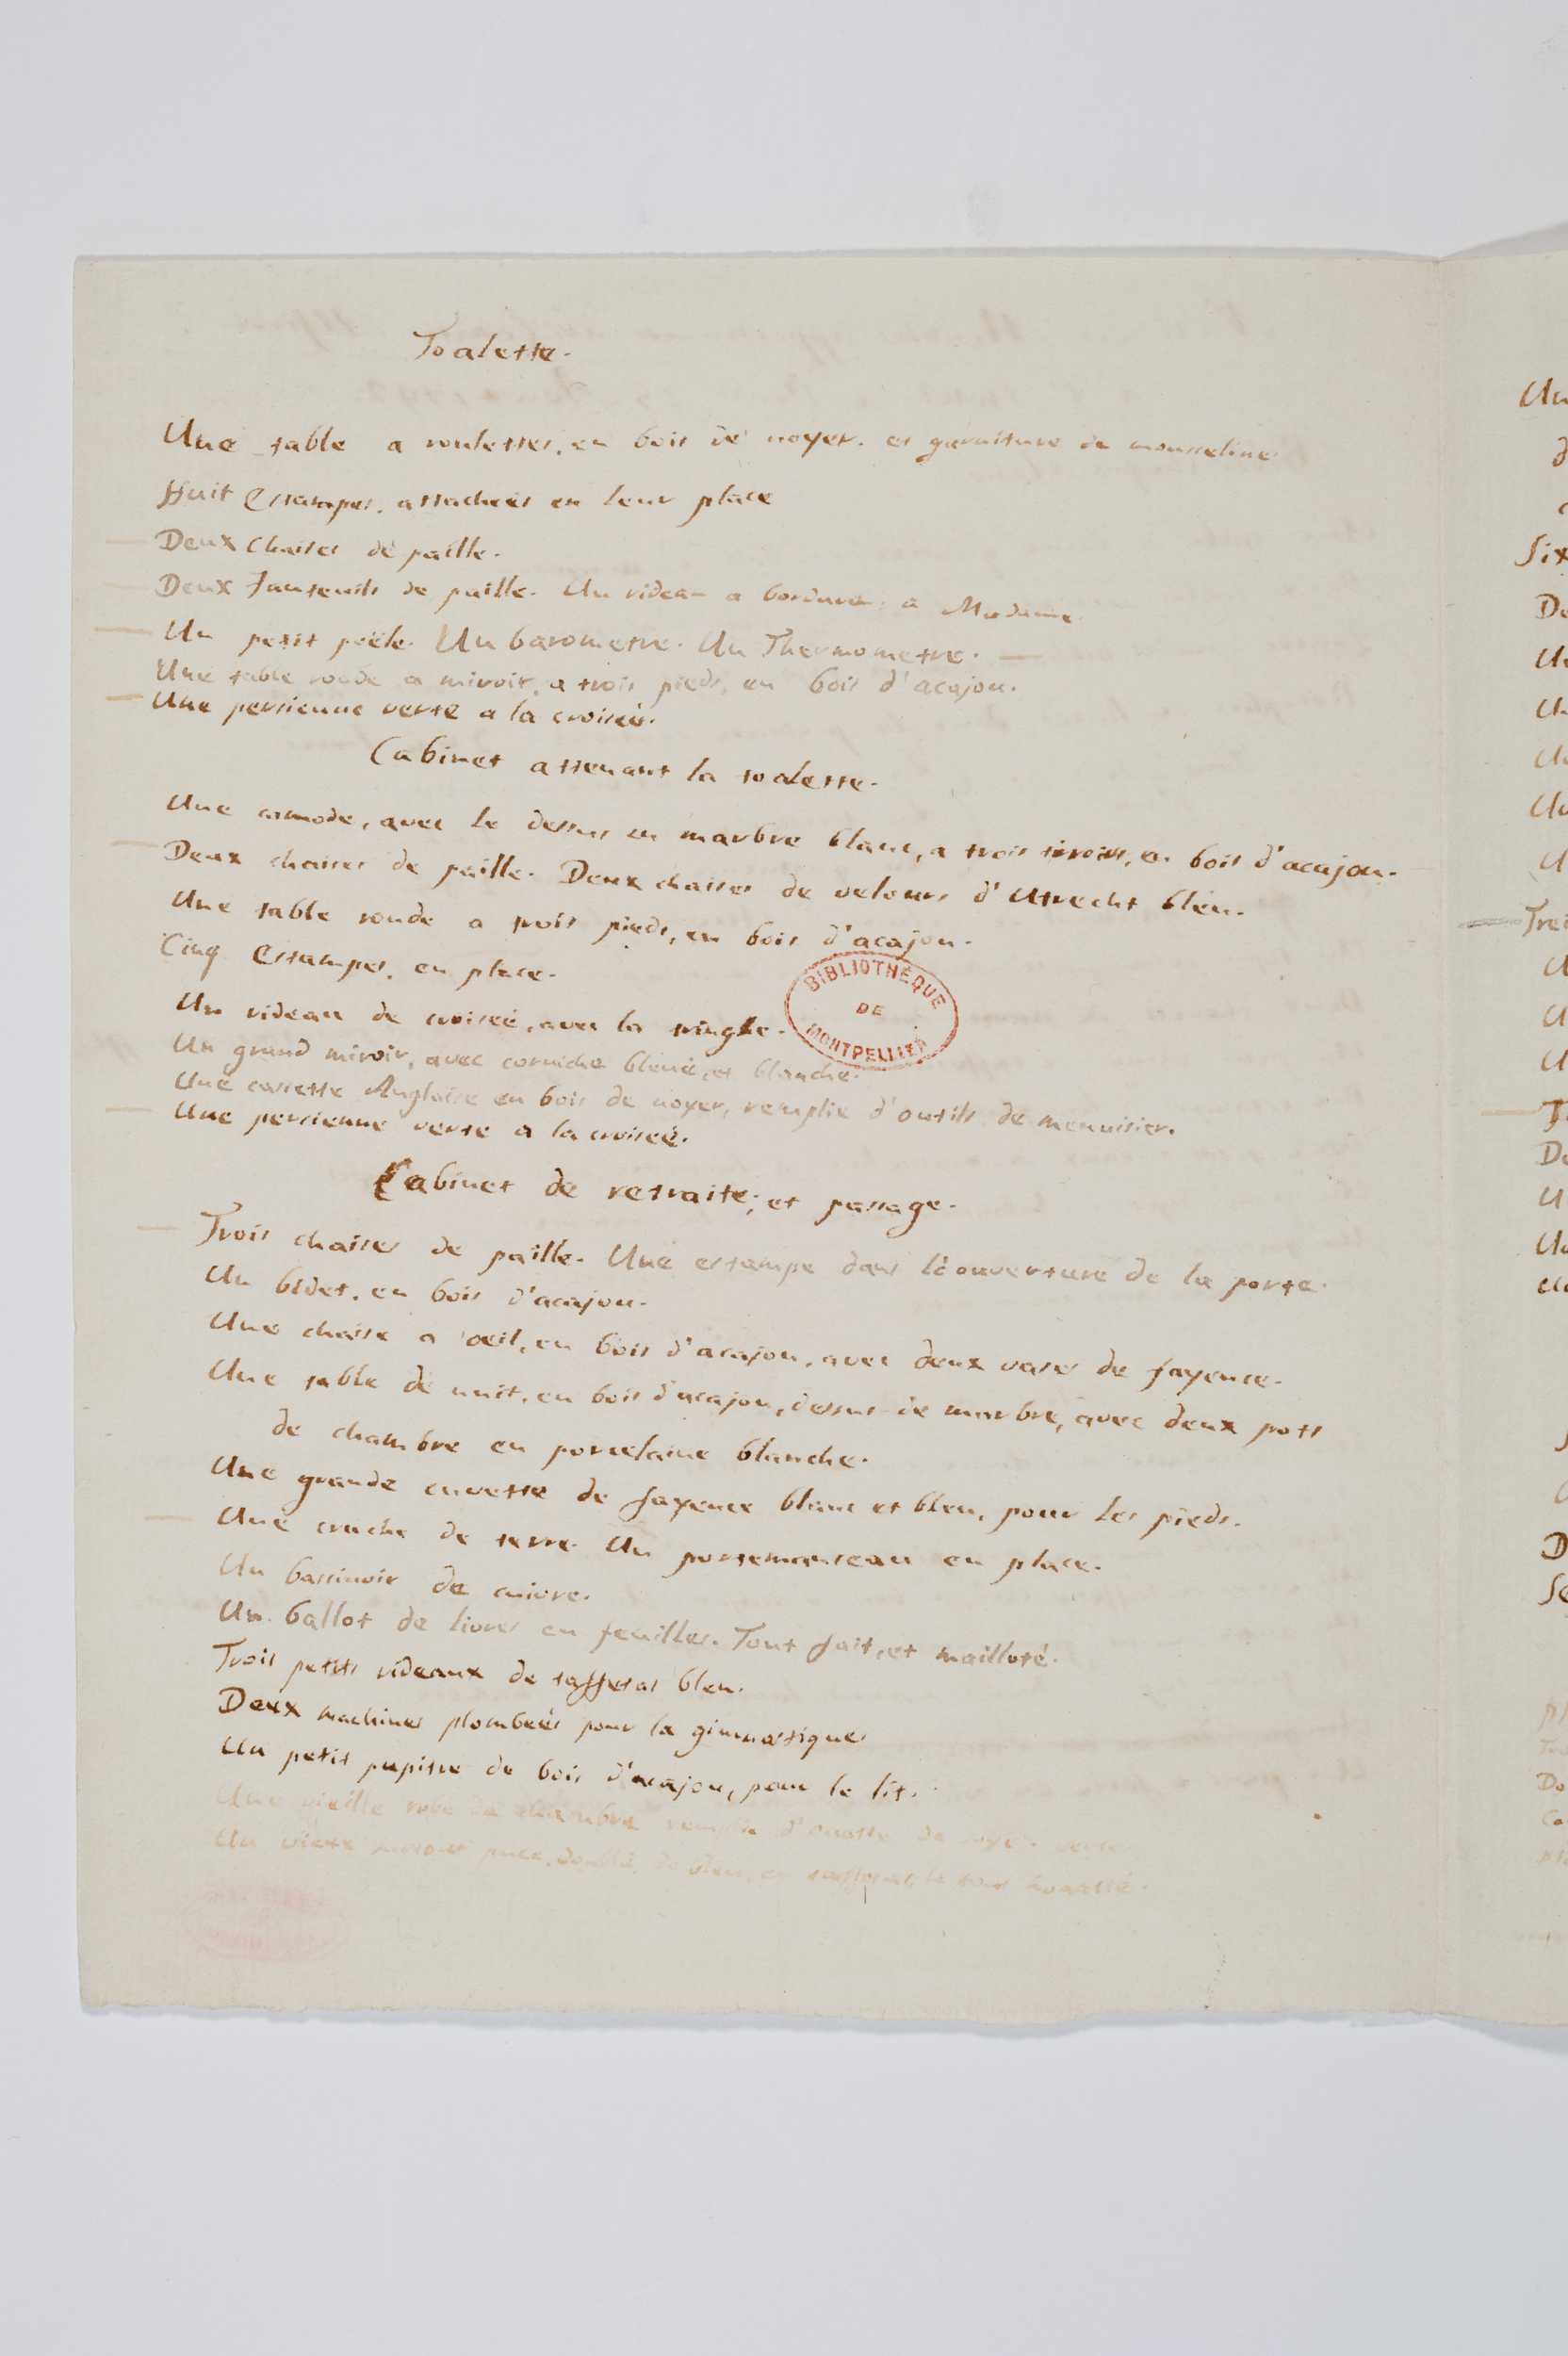 Toalette.
Une table a roulettes, en bois de noyer. et garniture de mousseline
Huit Estampes, attacheés en leur place
Deux Chaises de paille.
Deux fauteuils de paille. Un rideau a bordure, a Madame.
Un petit poële. Un barometre. Un Thermometre.
Une table ronde a miroir, a trois pieds, en bois d'acajou.
Une persienne verte a la croiseé.
Cabinet attenant la toalette.
Une comode, avec le dessus en marbre blanc, a trois tiroirs, en bois d'acajou.
Deux chaises de paille. Deux chaises de velours d'Utrecht bleu.
Une table ronde a trois pieds, en bois d'acajou.
Cinq Estampes, en place.
Un rideau de croiseé, avec la tringle.
BIBLIOTHÈQUE
DE
MONTPELLIER
Un grand miroir, avec corniche bleue, et blanche.
Une cassette Anglaise en bois de noyer, remplie d'outils de menuisier.
Une persienne verte a la croiseé.
Cabinet de retraite, et passage.
Trois chaises de paille. Une estampe dans l'ouverture de la porte.
Un bidet, en bois d'acajou.
Une chaise a oeil, en bois d'acajou, avec deux vases de fayence.
Une table de nuit, en bois d'acajou, dessus de marbre, avec deux pots
de chambre en porcelaine blanche.
Une grande cuvette de fayence blanc et bleu, pour les pieds.
Une cruche de terre. Un portemanteau en place.
Un bassinoir de cuivre.
Un ballot de livres en feuilles. Tout fait, et mailloté.
Trois petits rideaux de taffetas bleu.
Deux machines plombeés pour la gimnastique
Un petit pupitre de bois d'acajou, pour le lit.
Une vieille robe de chambre remplie d'ouatte de soye verte.
Un vieux surtout puce, doublé de bleu, en taffetas, le tout